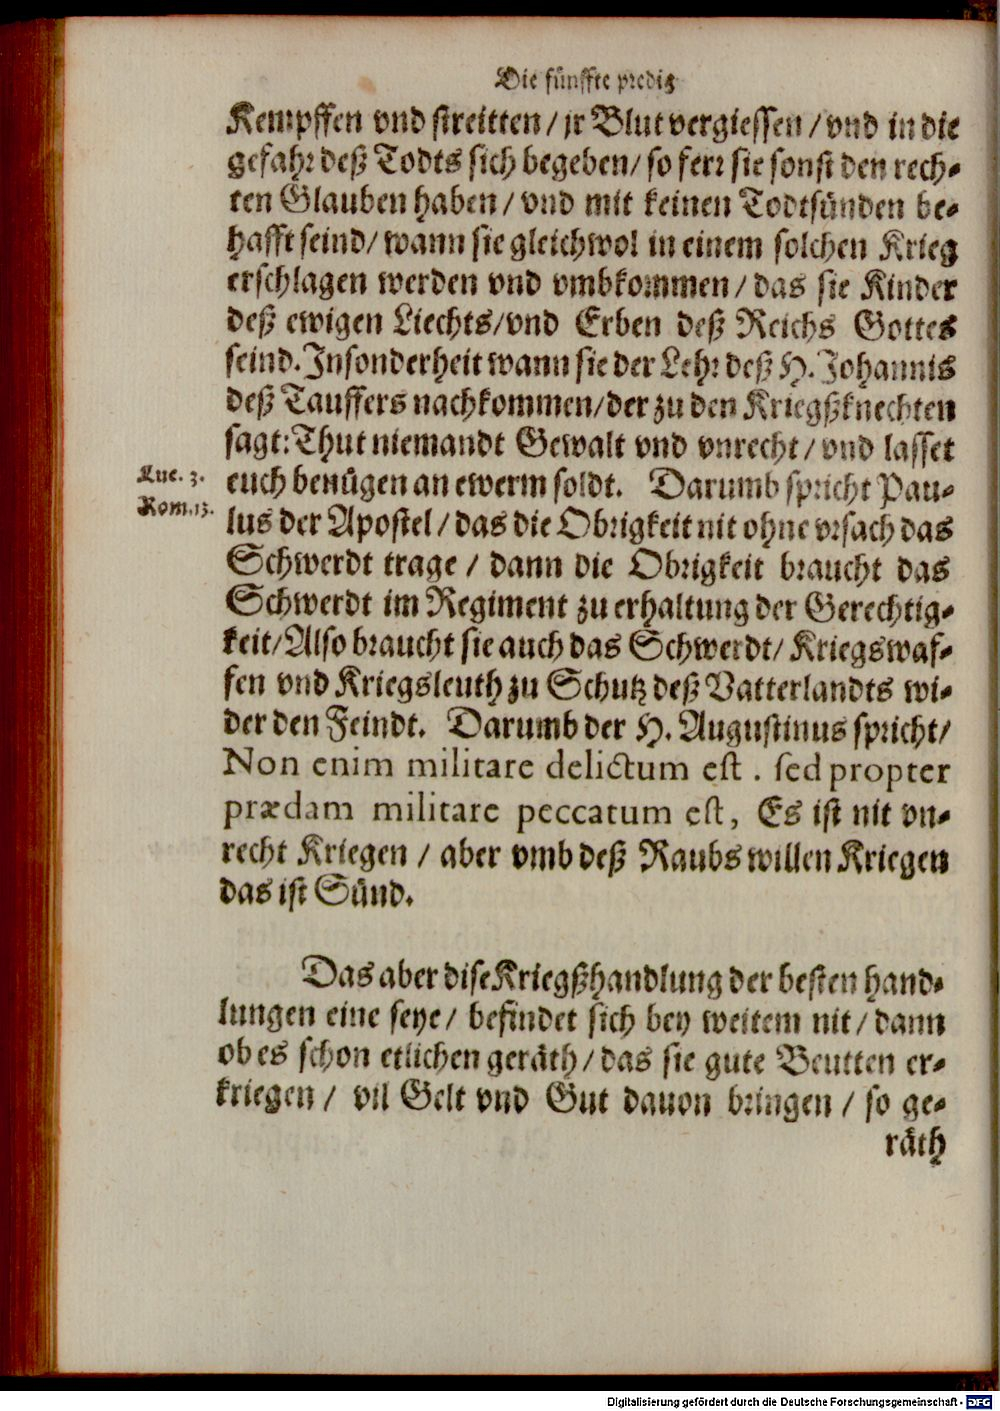 Die fünffte predig
Kempffen vnd streitten / jr Blut vergiessen / vnd in die
gefahr deß Todts sich begeben / so ferr sie sonst den rech-
ten Glauben haben / vnd mit keinen Todtsünden be-
hafft seind / wann sie gleichwol in einem solchen Krieg
erschlagen werden vnd vmbkommen / das sie Kinder
deß ewigen Liechts / vnd Erben deß Reichs Gottes
seind. Insonderheit wann sie der Lehr deß H. Johannis
deß Tauffers nachkommen / der zu den Kriegßknechten
sagt: Thut niemandt Gewalt vnd vnrecht / vnd lasset
Luc. 3.
euch benügen an ewerm soldt. Darumb spricht Pau-
Rom. 13.
lus der Apostel / das die Obrigkeit nit ohne vrsach das
Schwerdt trage / dann die Obrigkeit braucht das
Schwerdt im Regiment zu erhaltung der Gerechtig-
keit / Also braucht sie auch das Schwerdt / Kriegswaf-
fen vnd Kriegsleuth zu Schutz deß Vatterlandts wi-
der den Feindt. Darumb der H. Augustinus spricht /
Non enim militare delictum est . sed propter
prædam militare peccatum est, Es ist nit vn-
recht Kriegen / aber vmb deß Raubs willen Kriegen
das ist Sünd.
Das aber dise Kriegßhandlung der besten hand-
lungen eine seye / befindet sich bey weitem nit / dann
ob es schon etlichen geräth / das sie gute Beutten er-
kriegen / vil Gelt vnd Gut dauon bringen / so ge-
räth
Digitalisierung gefördert durch die Deutsche Forschungsgemeinschaft - DFG